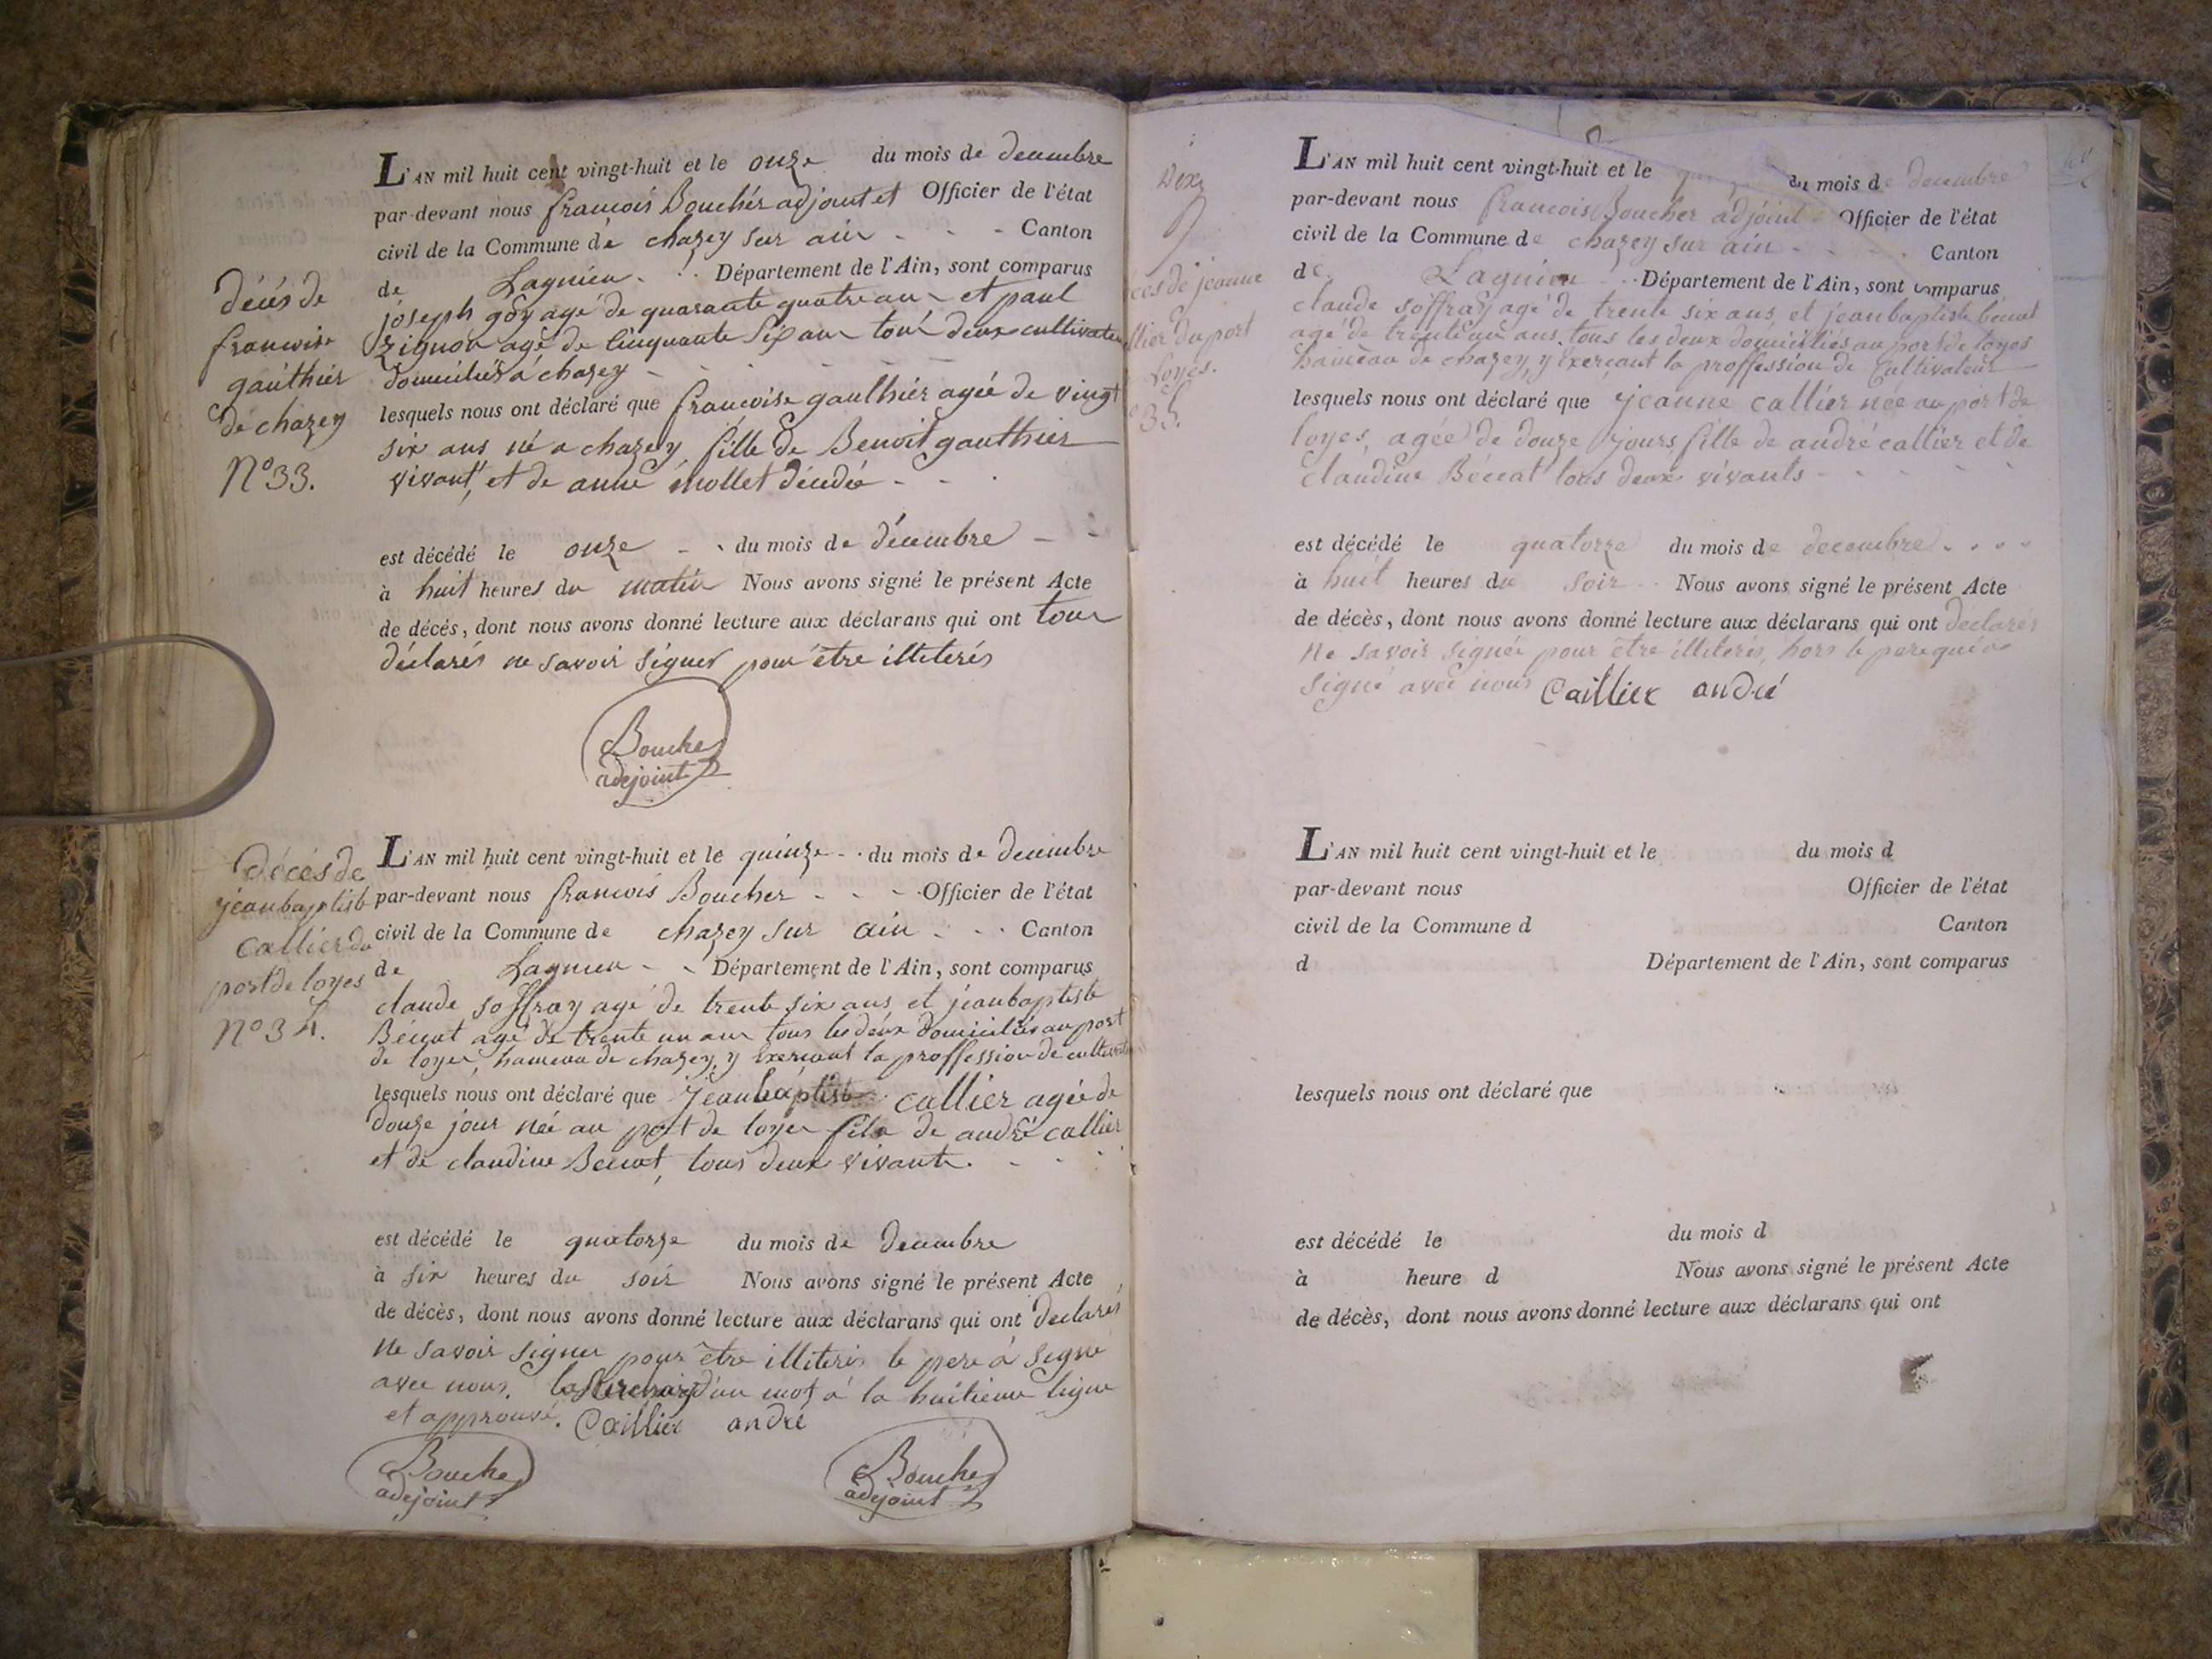 L'AN mil huit cent vingt-huit et le onze du mois de decembre
par-devant nous francois Bouchér adjoint et Officier de l'état
civil de la Commune de chazey sur ain - - - Canton
de Lagnieu - . . Département de l'Ain, sont comparus
joseph goy agé de quarante quatre ans et paul
zignon agé de cinquante six ans tous deux cultivateurs
domiciliés à chazey - - - -
lesquels nous ont déclaré que francoise gauthier agée de vingt
six ans né a chazey fille de Benoit gauthier
vivant, et de anne mollet décédée - - .
décés de
francoise
gauthier
de chazey
N° 33.
est décédé le onze - . du mois de décembre - -
à huit heures du matin Nous avons signé le présent Acte
de décés, dont nous avons donné lecture aux déclarans qui ont tous
déclarés ne savoir signer pour être illiterés
Boucher
adejoint
L'AN mil huit cent vingt-huit et le quinze - . du mois de decembre
par-devant nous francois Boucher - - - . Officier de l'état
civil de la Commune de chazey sur ain - - . Canton
de Lagnieu - - Département de l'Ain, sont comparus
claude soffray agé de trente six ans et jeanbaptiste
Béccat agé de trente un ans tous les deux domiciliés au port
de loyes, hameau de chazey, y exercant la proffession de cultivateur
lesquels nous ont déclaré que jeanbaptiste callier agée de
douze jour née au port de loyes fils de andré callier
et de claudine Beccat, tous deux vivants. - - -
décés de
jeanbaptiste
callier du
port de loyes
N° 34.
est décédé le quatorze du mois de decembre
à six heures du soir Nous avons signé le présent Acte
de décès, dont nous avons donné lecture aux déclarans qui ont declarés
ne savoir signer pour être illiterés le pere à signé
avec nous. la surcharge d'un mot à la huitieme ligne
et approuvé. Caillier andré
Boucher
adejoint
Boucher
adejoint
L'AN mil huit cent vingt-huit et le du mois de decembre
par-devant nous francois Boucher adjoint Officier de l'état
civil de la Commune de chazey sur ain - - - Canton
de Lagnieu - . . Département de l'Ain, sont comparus
claude soffray agé de trente six ans et jeanbaptiste béccat
agé de trente un ans, tous les deux domiciliés au port de loyes
hameau de chazey, y exercant la proffession de cultivateur
lesquels nous ont déclaré que jeanne callier née au port de
loyes, agée de douze jours fille de andré callier et de
claudine Béccat tous deux vivants - - - -
cés de jeanne
llier du port
loyes.
35.
est décédé le quatorze du mois de decembre . . . .
à huit heures du soir - . Nous avons signé le présent Acte
de décès, dont nous avons donné lecture aux déclarans qui ont declarés
ne savoir signér pour être illiterés, hors le pere qui a
signé avec nous Caillier andré
L'AN mil huit cent vingt-huit et le du mois d
par-devant nous Officier de l'état
civil de la Commune d Canton
d Département de l'Ain, sont comparus
lesquels nous ont déclaré que
est décédé le du mois d
à heure d Nous avons signé le présent Acte
de décès, dont nous avons donné lecture aux déclarans qui ont